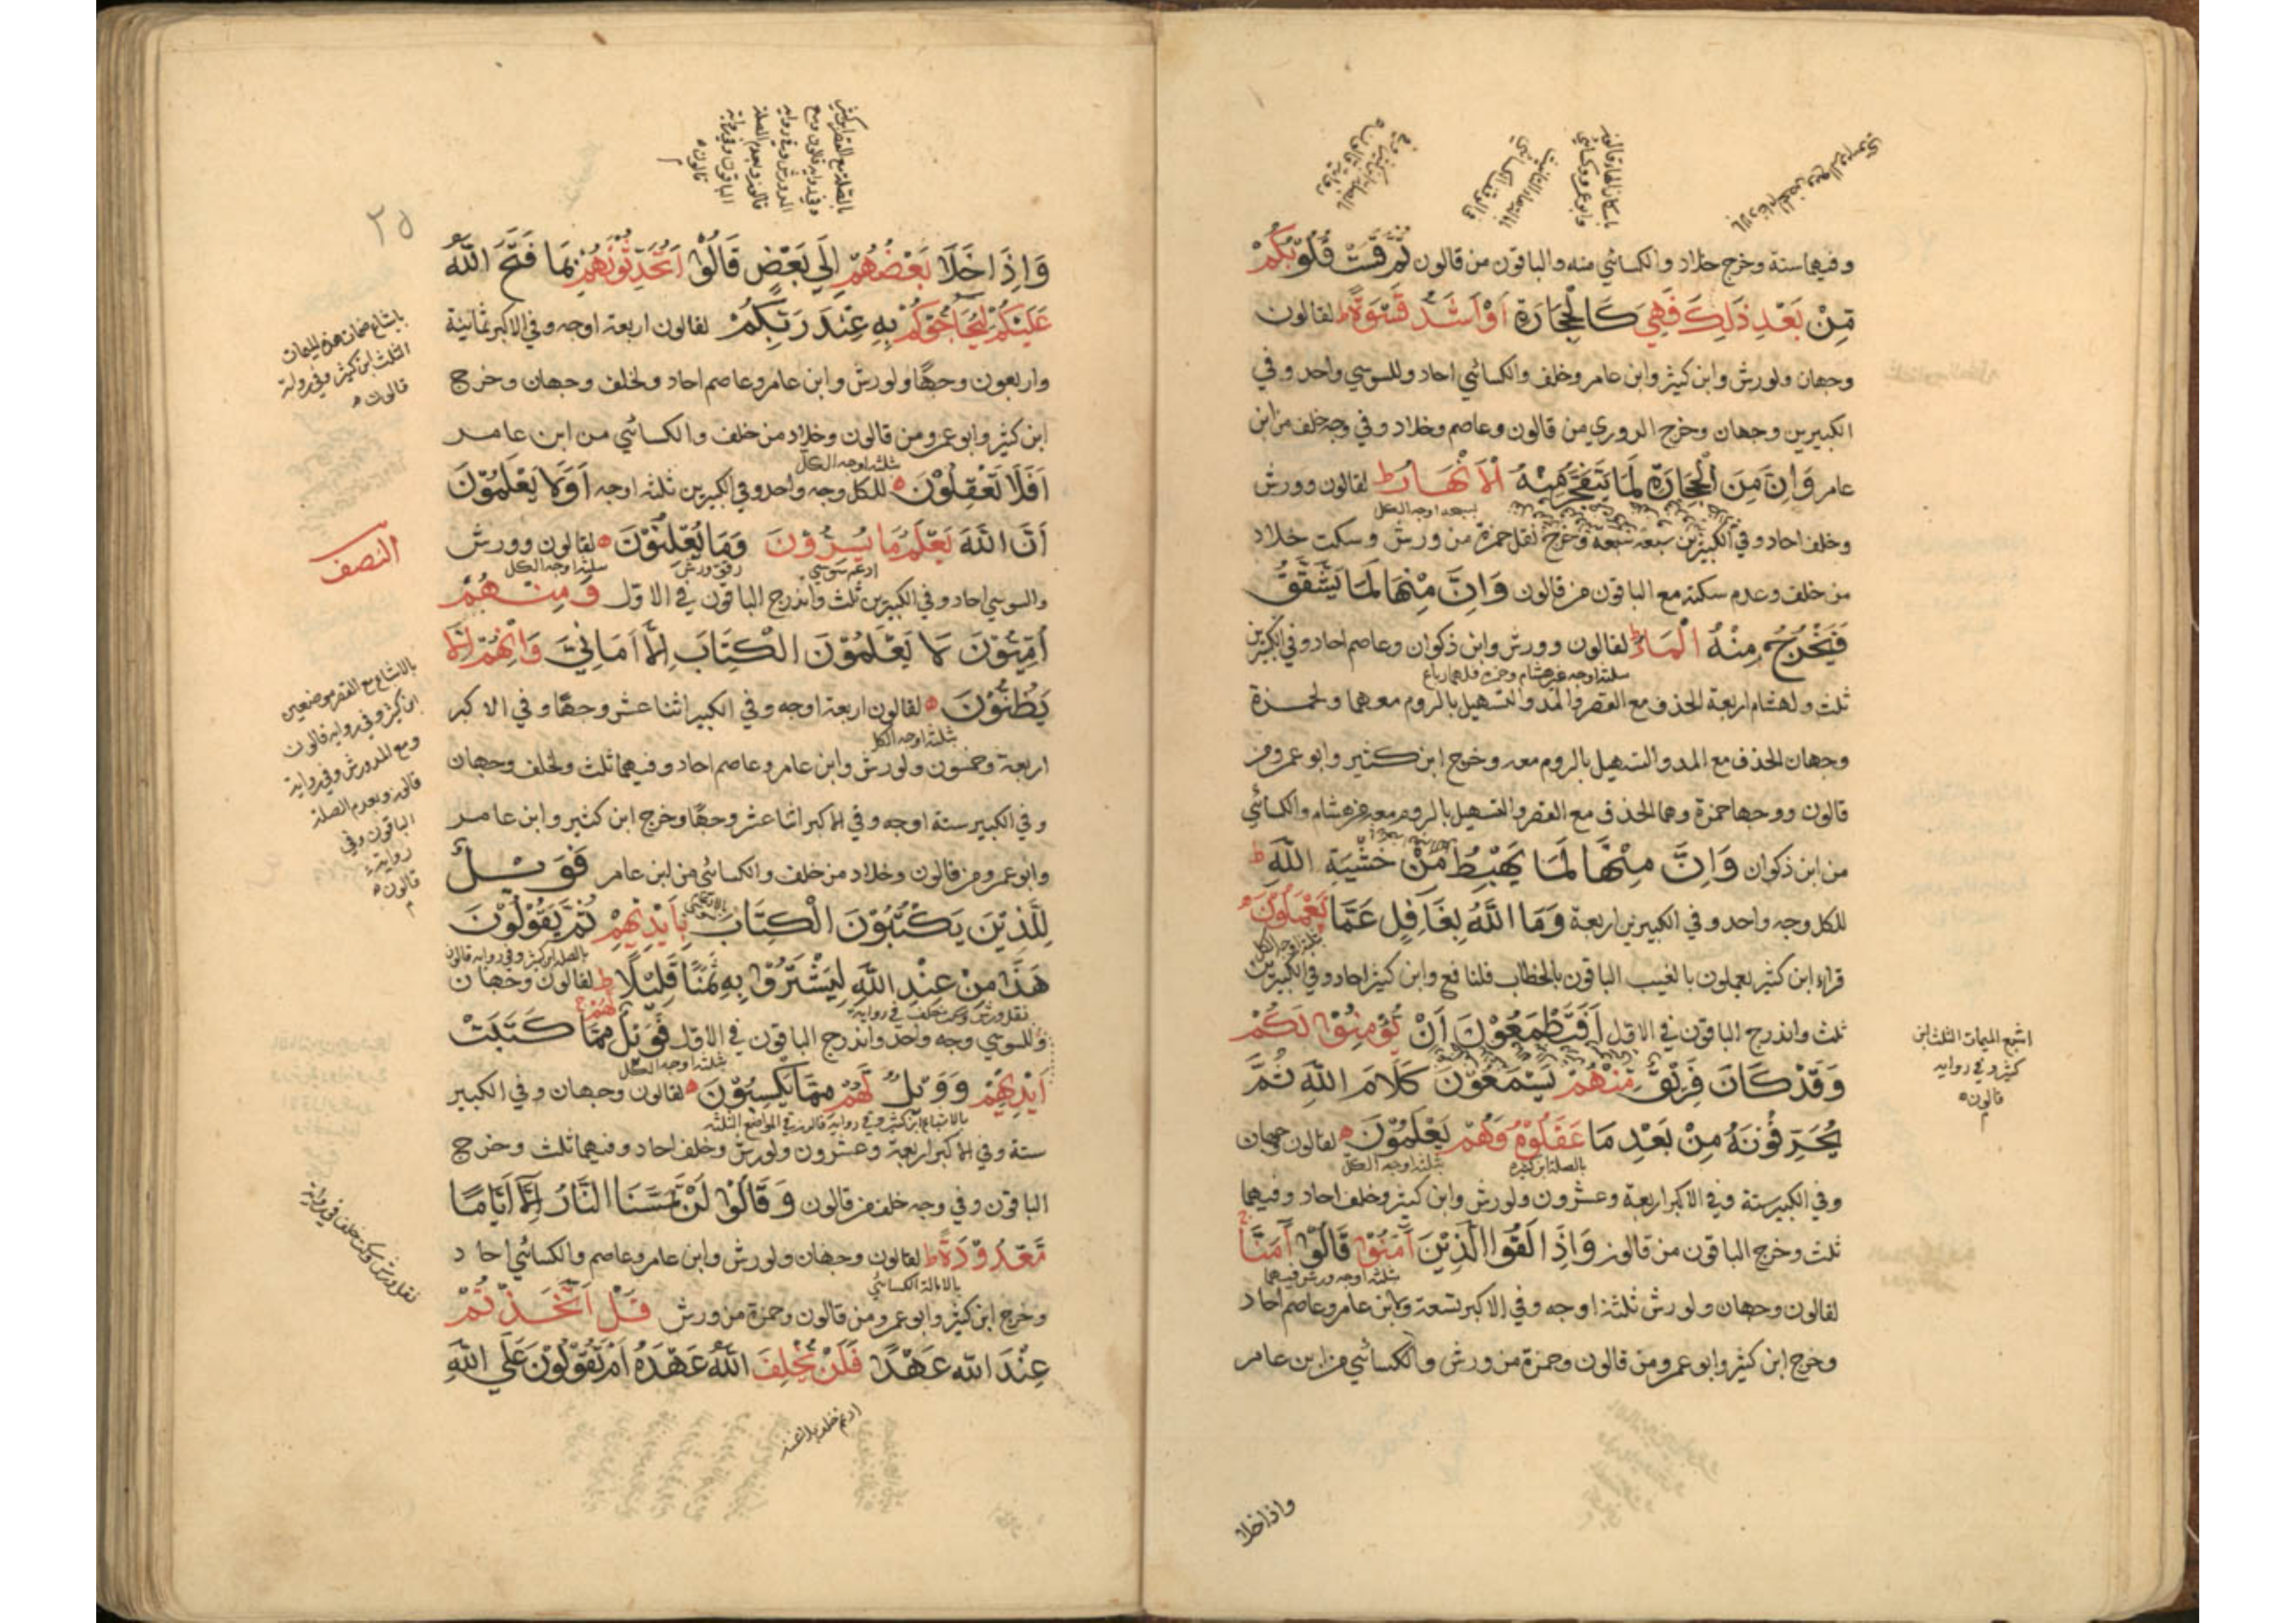 وفيهما ستة وخرج خلاد والكسائي منه والباقون من قالون ثُمَّ قَسَتْ قُلُوبُكُمْ
مِنْ بَعْدِ ذَلِكَ فَهِيَ كَالْحِجَارَةِ أَوْ أَشَدُّ قَسْوَةً ط لقالون
وجهان ولورش وابن كثير وابن عامر وخلف والكسائي احاد وللسوسي واحد وفي
الكبيرين وجهان وخرج الدوري من قالون وعاصم وخلاد وفي وجه خلف من ابن
عامر وَإِنَّ مِنَ الْحِجَارَةِ لَمَا يَتَفَجَّرُ مِنْهُ الْأَنْهَارُ ط لقالون وورش
وخلف احاد وفي الكبيرين سبعة سبعة وخرج نقل حمزة من ورش وسكت خلاد
من خلف وعدم سكته مع الباقون من قالون وَإِنَّ مِنْهَا لَمَا يَشَّقَّقُ
فَيَخْرُجُ مِنْهُ الْمَاءُ ط لقالون وورش وابن ذكوان وعاصم احاد وفي الكبيرين
ثلث ولهشام اربعة الحذف مع القصر والمد والتسهيل بالروم معهما ولحمزة
وجهان الحذف مع المد والتسهيل بالروم معه وخرج ابن كثير وابو عمرو من
قالون ووجها حمزة وهما الحذف مع القصر والتسهيل بالروم معه من هشام والكسائي
من ابن ذكوان وَإِنَّ مِنْهَا لَمَا يَهْبِطُ مِنْ خَشْيَةِ اللَّهِ ط
للكل وجه واحد وفي الكبيرين اربعة وَمَا اللَّهُ بِغَافِلٍ عَمَّا يَعْمَلُونَ
قراء ابن كثير يعملون بالغيب الباقون بالخطاب فلنافع وابن كثير احاد وفي الكبيرين
ثلث واندرج الباقون في الاول أَفَتَطْمَعُونَ أَنْ يُؤْمِنُوا لَكُمْ
وَقَدْ كَانَ فَرِيقٌ مِنْهُمْ يَسْمَعُونَ كَلَامَ اللَّهِ ثُمَّ
يُحَرِّفُونَهُ مِنْ بَعْدِ مَا عَقَلُوهُ وَهُمْ يَعْلَمُونَ لقالون وجهان
وفي الكبير ستة وفي الاكبر اربعة وعشرون ولورش وابن كثير وخلف احاد وفيهما
ثلث وخرج الباقون من قالون وَإِذَا لَقُوا الَّذِينَ آمَنُوا قَالُوا آمَنَّا
لقالون وجهان ولورش ثلثة اوجه وفي الاكبر تسعة ولابن عامر وعاصم احاد
وخرج ابن كثير وابو عمرو من قالون وحمزة من ورش والكسائي من ابن عامر
اشبع الميمات الثلث ابن
كثير وفي رواية
قالون
واذا خلا
٢٥
وَإِذَا خَلَا بَعْضُهُمْ إِلَى بَعْضٍ قَالُوا أَتُحَدِّثُونَهُمْ بِمَا فَتَحَ اللَّهُ
عَلَيْكُمْ لِيُحَاجُّوكُمْ بِهِ عِنْدَ رَبِّكُمْ لقالون اربعة اوجه وفي الاكبر ثمانية
واربعون وجها ولورش وابن عامر وعاصم احاد ولخلف وجهان وخرج
ابن كثير وابو عمرو من قالون وخلاد من خلف والكسائي من ابن عامر
أَفَلَا تَعْقِلُونَ للكل وجه واحد وفي الكبيرين ثلثة اوجه أَوَلَا يَعْلَمُونَ
أَنَّ اللَّهَ يَعْلَمُ مَا يُسِرُّونَ وَمَا يُعْلِنُونَ لقالون وورش
والسوسي احاد وفي الكبيرين ثلث واندرج الباقون في الاول وَمِنْهُمْ
أُمِّيُّونَ لَا يَعْلَمُونَ الْكِتَابَ إِلَّا أَمَانِيَّ وَإِنْ هُمْ إِلَّا
يَظُنُّونَ لقالون اربعة اوجه وفي الكبير اثنا عشر وجها وفي الاكبر
اربعة وخمسون ولورش وابن عامر وعاصم احاد وفيهما ثلث ولخلف وجهان
وفي الكبير ستة اوجه وفي الاكبر اثنا عشر وجها وخرج ابن كثير وابن عامر
وابو عمرو من قالون وخلاد من خلف والكسائي من ابن عامر فَوَيْلٌ
لِلَّذِينَ يَكْتُبُونَ الْكِتَابَ بِأَيْدِيهِمْ ثُمَّ يَقُولُونَ
هَذَا مِنْ عِنْدِ اللَّهِ لِيَشْتَرُوا بِهِ ثَمَنًا قَلِيلًا ط لقالون وجهان
وللسوسي وجه واحد واندرج الباقون في الاول فَوَيْلٌ لَهُمْ مِمَّا كَتَبَتْ
أَيْدِيهِمْ وَوَيْلٌ لَهُمْ مِمَّا يَكْسِبُونَ لقالون وجهان وفي الكبير
ستة وفي الاكبر اربعة وعشرون ولورش وخلف احاد وفيهما ثلث وخرج
الباقون وفي وجه خلف من قالون وَقَالُوا لَنْ تَمَسَّنَا النَّارُ إِلَّا أَيَّامًا
مَعْدُودَةً ط لقالون وجهان ولورش وابن عامر وعاصم والكسائي احاد
وخرج ابن كثير وابو عمرو من قالون وحمزة من ورش قُلْ أَتَّخَذْتُمْ
عِنْدَ اللَّهِ عَهْدًا فَلَنْ يُخْلِفَ اللَّهُ عَهْدَهُ أَمْ تَقُولُونَ عَلَى اللَّهِ
باشباع ضمات هذه الميمات
الثلث ابن كثير وفي رواية
قالون
النصف
ابن كثير وفي رواية قالون
ومع المد ورش وفي رواية
قالون وبعدم الصلة
الباقون وفي
رواية
قالون